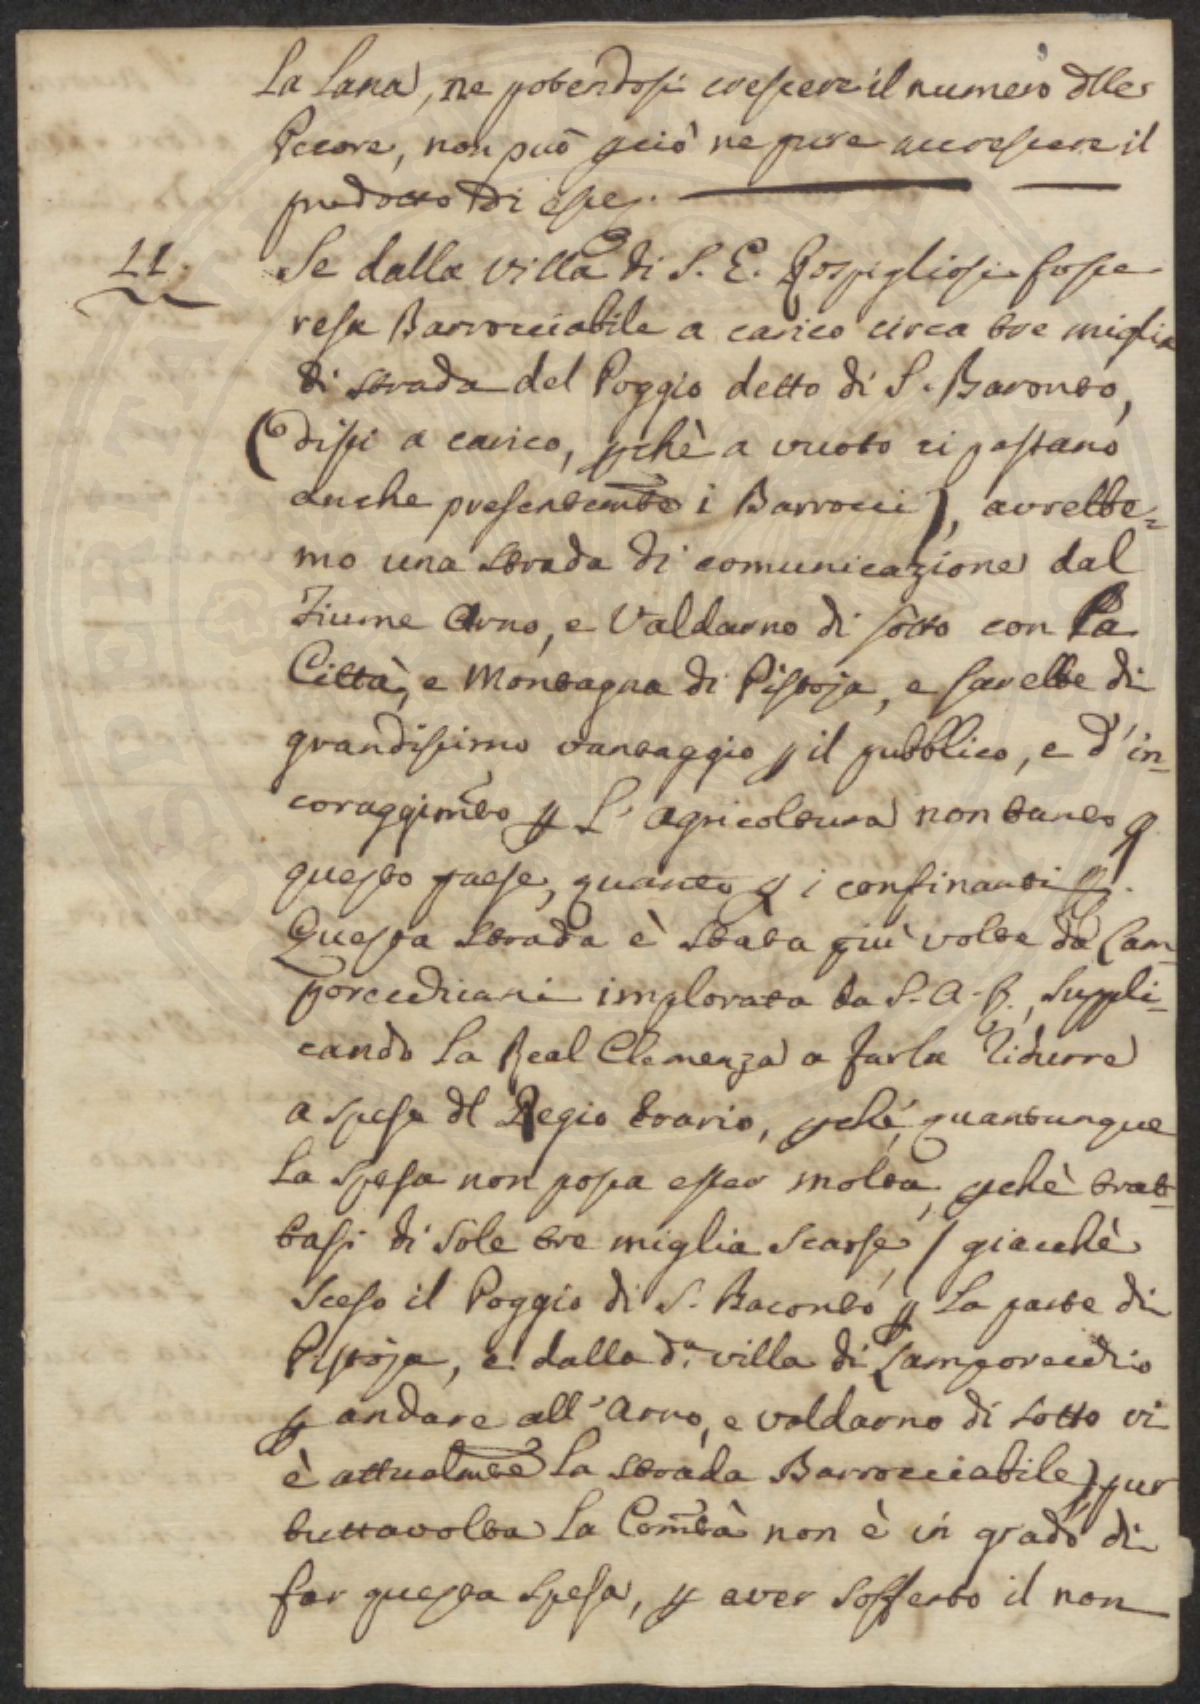 la lana, ne potendosi crescere il numero dlle
Pecore, non può pciò ne pure accrescere il
prodotto di esse.
11. Se dalla villa di S. E. Rospigliosi fosse
resa Barrocciabile a carico circa tre miglia
di strada del Poggio detto di S. Baronto,
(dissi a carico, pchè a vuoto ci passano
anche presentemte i Barrocci), avrebbe=
mo una strada di comunicazione dal
Fiume Arno, e Valdarno di sotto con la
Città, e Montagna di Pistoja, e sarebbe di
grandissimo vantaggio p il pubblico, e d'in-
coraggimto p l'agricoltura non tanto p
questo paese, quanto p i confinanti
Questa strada è stata più volte da Lam-
porecchiani implorata da S. A. R., suppli-
cando la Real Clemenza a farla ridurre
a spese dl Regio Erario, pchè, quantunque
la spesa non possa esser molta, pchè trat-
tasi di sole tre miglia scarse, (giacchè
sceso il Poggio di S. Baronto p la parte di
Pistoja, e dalla da. villa di Lamporecchio
p andare all'Arno, e valdarno di sotto vi
è attualmte la strada Barrocciabile) pur
tuttavolta la Comtà non è in grado di
far questa spesa, p aver sofferto il non